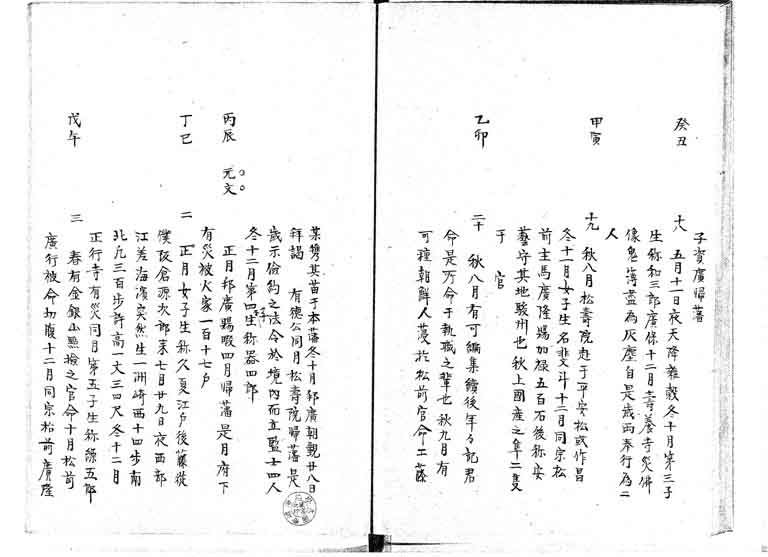 子資廣帰藩
癸丑 十八 五月十一日夜天降雜穀冬十月第三子
生称和三郎廣保十二月壽養寺災佛
像鬼簿盡為灰塵自是歳両奉行為二
人
甲寅 十九 秋八月松壽院赴于平安松或作昌
冬十一月女子生名斐斗十二月同宗松
前主馬廣隆賜加禄五百石後称安
藝守其地駿州也秋上國産之隼二隻
于 官
乙卯 二十 秋八月有可編集續後年々記君
命是乃命于執職之輩也秋九月有
可種朝鮮人蓡於松前官命工藤
某携其苗于本藩冬十月邦廣朝覲廿八日
拝謁 有德公同月松壽院帰藩是
歳示儉約之法令於境内而立監士四人
冬十二月第四子生称器四郎
丙辰 元文 正月邦廣賜暇四月帰藩是月府下
有災被火家一百十七戸
丁巳 二 正月女子生称久夏江戸後藤従
僕飯倉源次郎来七月廿九日夜西部
江差海濱突然生一洲崎西十四歩南
北凡三百歩許高一丈三四尺冬十二月
正行寺有災同月第五子生称 五郎
戊午 三 春有金銀山點撿之官命十月松前
廣行被命切腹十二月同宗松前廣隆